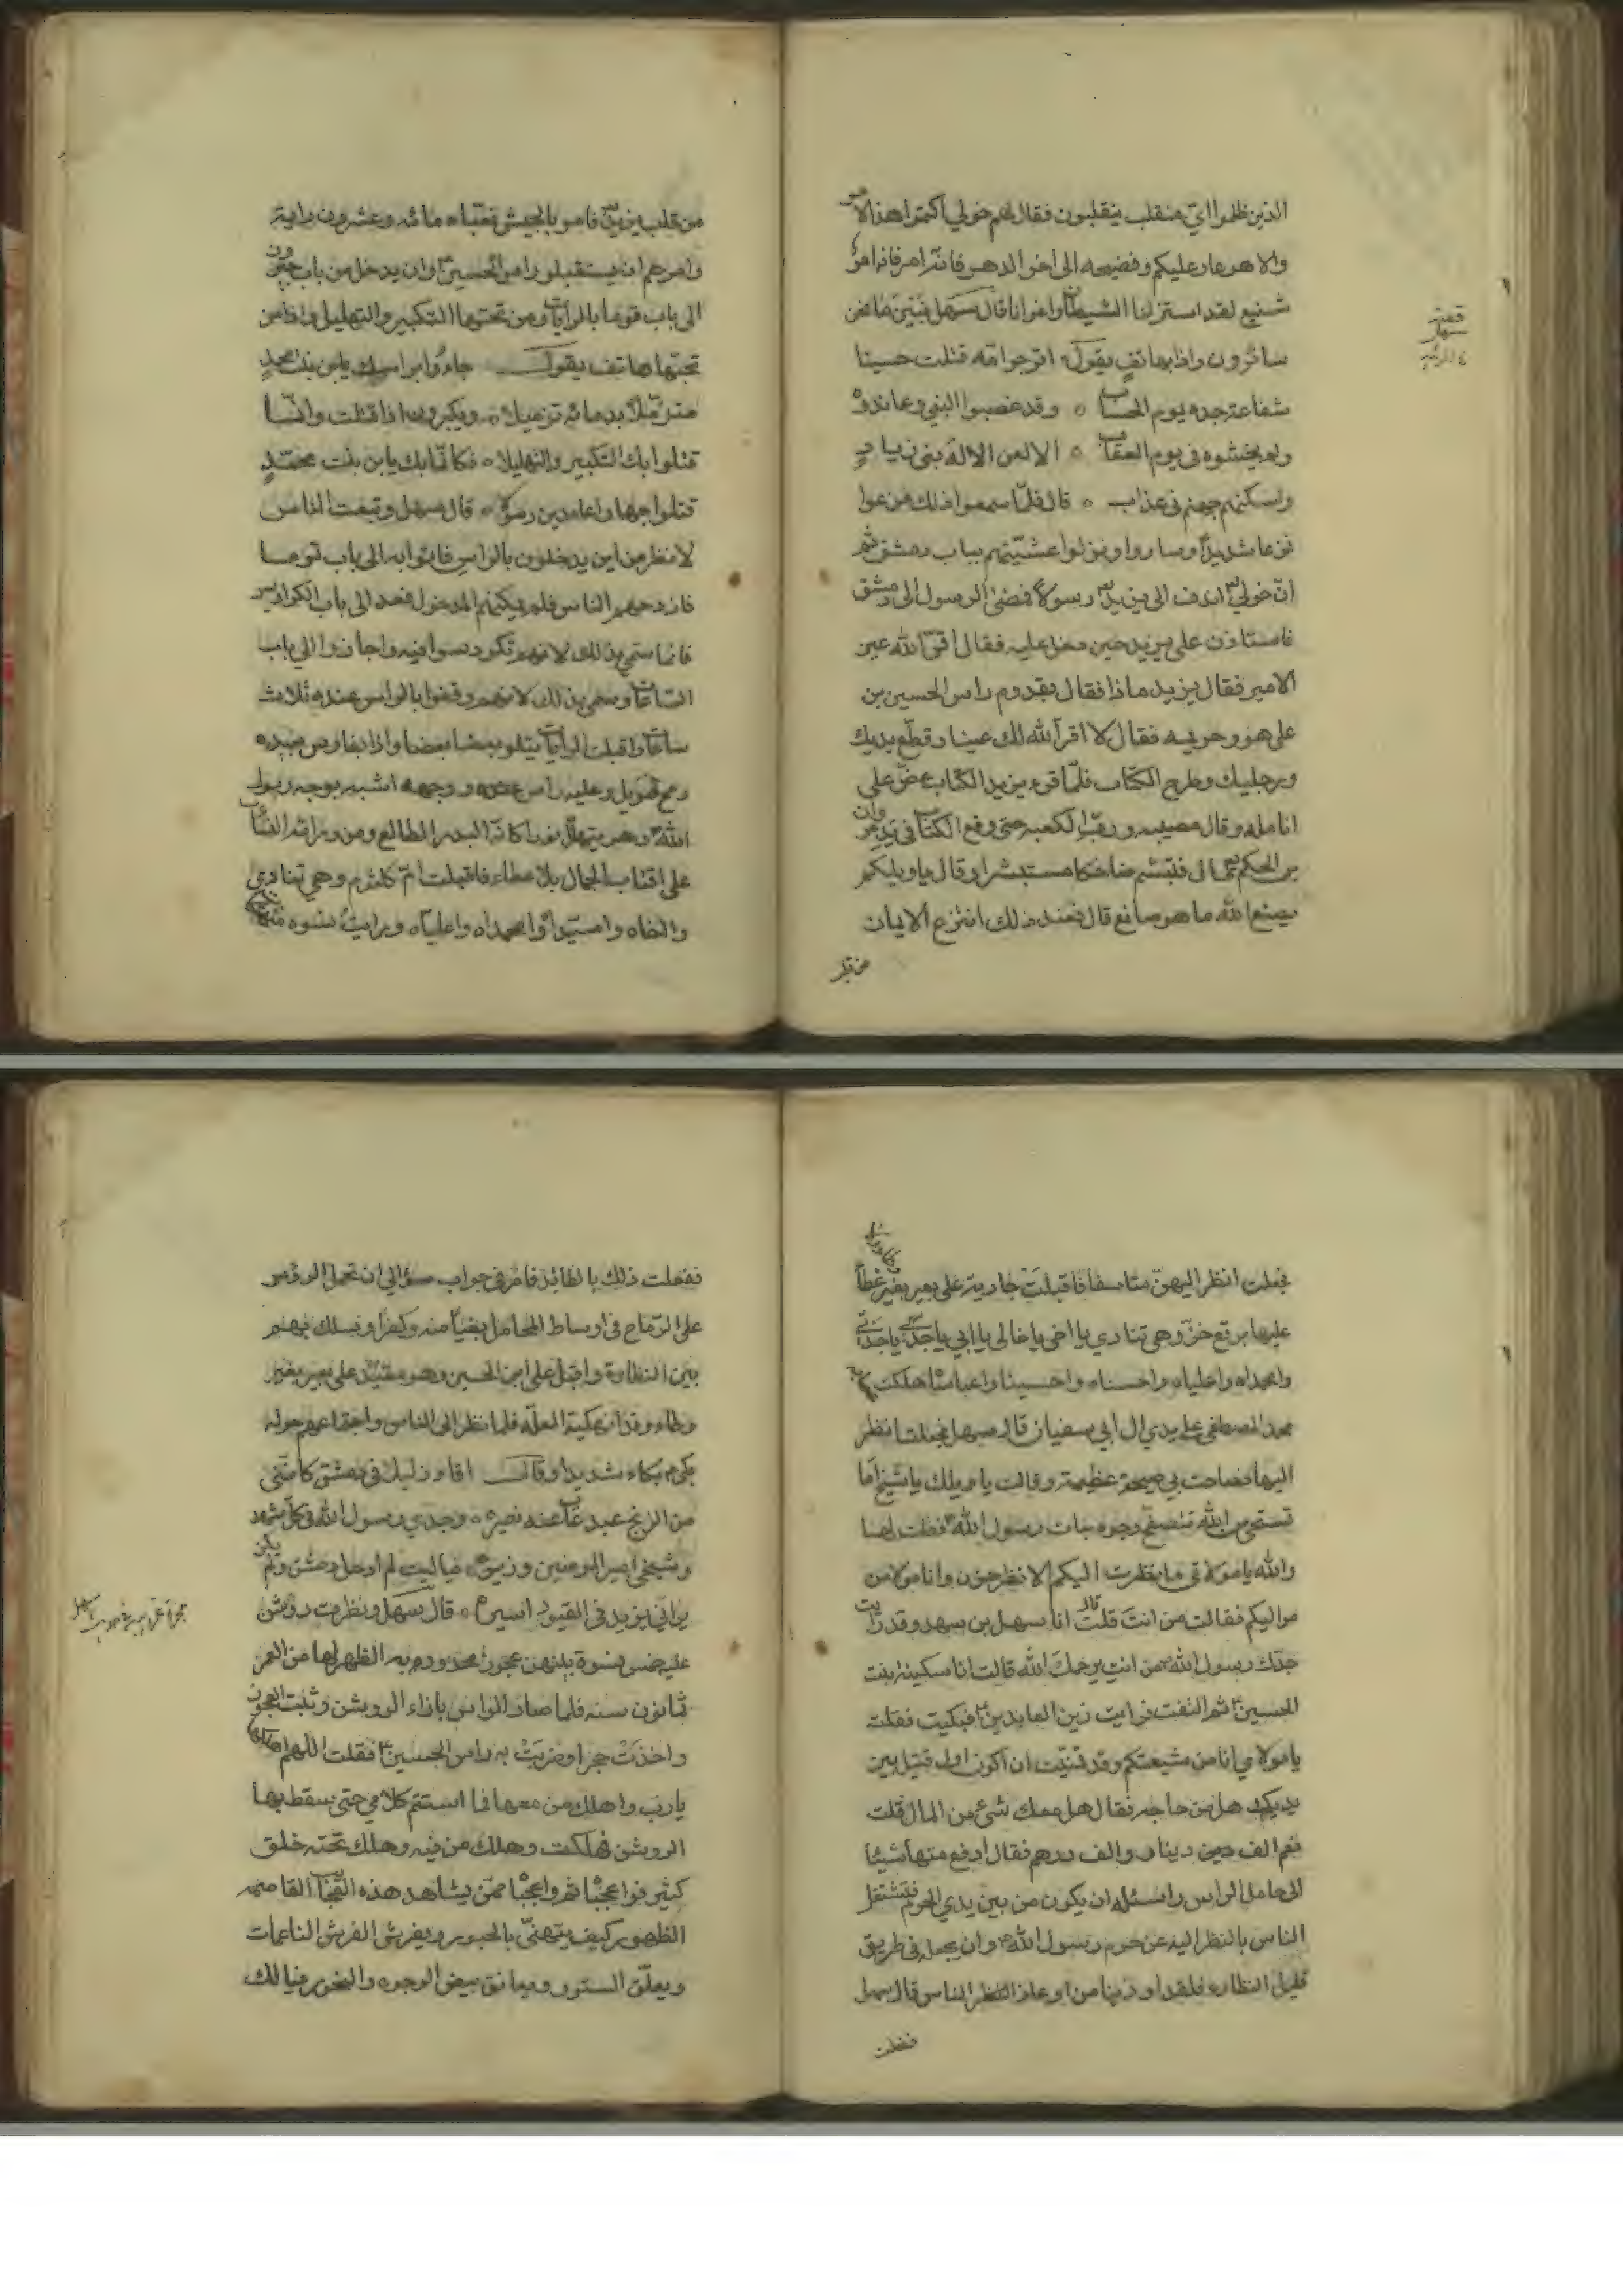 الذين ظلموا اي منقلب ينقلبون فقال لهم خولي اكتموا هذا الامر
والا هو عار عليكم وفضيحه الى اخر الدهر فانه امر فانه امر
شنيع لقد استزلنا الشيطان واغوانا قال سهل فبينما نحن
سائرون واذا بهاتف يقول اترجو امّه قتلت حسينا
شفاعة جده يوم الحساب ٥ وقد غصبوا النبي وعاندوه
ولم يخشوه في يوم العقاب ٥ الا لعن الاله بني زياد
واسكنهم جهنم في عذاب ٥ قال فلمّا سمعوا ذلك فزعوا
فزعا شديدا وساروا ونزلوا عشيّتهم بباب دمشق ثم
انّ خولي انفذ الى يزيد رسولا فمضى الرسول الى دمشق
فاستاذن على يزيد حين دخل عليه فقال اقرّ الله عين
الامير فقال يزيد بماذا فقال بقدوم راس الحسين بن
علي هو وحريمه فقال لا اقرّ الله لك عينا وقطع يديك
ورجليك وطرح الكتاب فلمّا قرء يزيد الكتاب عضّ على
انامله وقال مصيبه وربّ الكعبه حتى وقع الكتاب في يد مروان
بن الحكم قال فتبسّم ضاحكا مستبشرا وقال يا ويلكم
يصنع الله ما هو صانع قال فعند ذلك انتزع الايمان
من قلب
قصة
سهل
من قلب يزيد فامر بالجيش فعبّاه مائه وعشرون راية
وامرهم ان يستقبلو راس الحسين وان يدخل من باب جيرون
الى باب توما بالرايات ومن تحتها التكبير والتهليل واذا من
تحتها هاتف يقول جاءوا براسك يابن بنت محمد
متزمّلا بدمائه تزميلا ٥ ويكبرون اذا قتلت وانّما
قتلوا بك التكبير والتهليلا ٥ فكانّما بك يابن بنت محمّد
قتلوا جهارا عامدين رسولا ٥ قال سهل وتبعت الناس
لانظر من اين يدخلون بالراس فاتوا به الى باب توما
فازدحم الناس فلم يمكنهم الدخول فعد الى باب الكراديس
فانما سمّي بذلك لانهم تكردسوا فيه واجازوا الى باب
الساعات وسمي بذلك لانهم وقفوا بالراس عنده ثلاث
ساعات واقبلت الرايات يتلو بعضها بعضا واذا بفارس بيده
رمح طويل وعليه راس ووجهه اشبه بوجه رسول
الله وهو يتهلّل نورا كانّه البدر الطالع ومن ورائه النساء
على اقتاب الجمال بلا غطاء فاقبلت امّ كلثوم وهي تنادي
وااخاه واسيّداه وامحمداه واعلياه ورايت نسوه
فجعلت انظر اليهن متاسفا فاقبلت جارية على بعير بغير غطاء
عليها برقع خزّ وهي تنادي يا اخي يا خالي يا ابي يا جدّي يا جدّتي
وامحمداه واعلياه واحسناه واحسينا واعباسا هلكت
محمد المصطفى على يدي ال ابي سفيان قال سهل فجعلت انظر
اليها فصاحت بي صيحة عظيمة وقالت يا ويلك يا شيخ اما
تستحي من الله تتصفح وجوه بنات رسول الله فقلت لها
والله يا مولاتي ما نظرت اليكم الا نظر حزن وانا مولا من
مواليكم فقالت من انت قلت انا سهل بن سهد وقد رايت
جدّك رسول الله من انتِ يرحمك الله قالت انا سكينة بنت
الحسين ثم التفت فرايت زين العابدين فبكيت فقلت
يا مولاي انا من شيعتكم وقد تمنيّت ان اكون اول قتيل بين
يديك هل من حاجه فقال هل معك شيء من المال قلت
نعم الف دينار والف درهم فقال ادفع منها شيئا
الى حامل الراس واسئله ان يكون من بين يدي الحرم فتشتغل
الناس بالنظر اليه عن حرم رسول الله وان يحمله في طريق
قليل النظاره فلقد اوذينا من اوغاد النظر الناس قال سهل
ففعلت
ففعلت ذلك بالقائد فامر في جواب سؤالي ان تحمل الرؤس
على الرّماح في اوساط المحامل بغياً منه وكفراً ونسلك بهم
بين النظاره واقبل على ابن الحسين وهو مقيّد على بعير بغير
وطاء وقد انهكته العلّه فلما نظر الى الناس واجتماعهم حوله
بكى بكاء شديدا وقال اقاد ذليلا في دمشق كانني
من الزنج عبد غاب عنه نصير ٥ وجدي رسول الله في كل مشهد
وشيخي امير المومنين وزير ٥ فيا ليت لم ادخل دمشق ولم يكن
يراني يزيد في القيود اسير ٥ قال سهل ونظرت روشن
عليه خمس نسوة بينهن عجوز محدودبه الظهر لها من العمر
ثمانون سنه فلما صار الراس بازاء الروشن وثبت العجوز
واخذت حجرا وضربت به راس الحسين فقلت اللهم اهلكها
يا رب واهلك من معها فما استتم كلامي حتى سقط بها
الروشن فهلكت وهلك من فيه وهلك تحته خلق
كثير فواعجبا ثم واعجبا ممّن يشاهد هذه القاصمه
الظهور كيف يتهنّى بالحبور ويفرش الفرش الناعمات
ويعلّق الستور ويعانق بيض الوجوه والنحور فيا لك